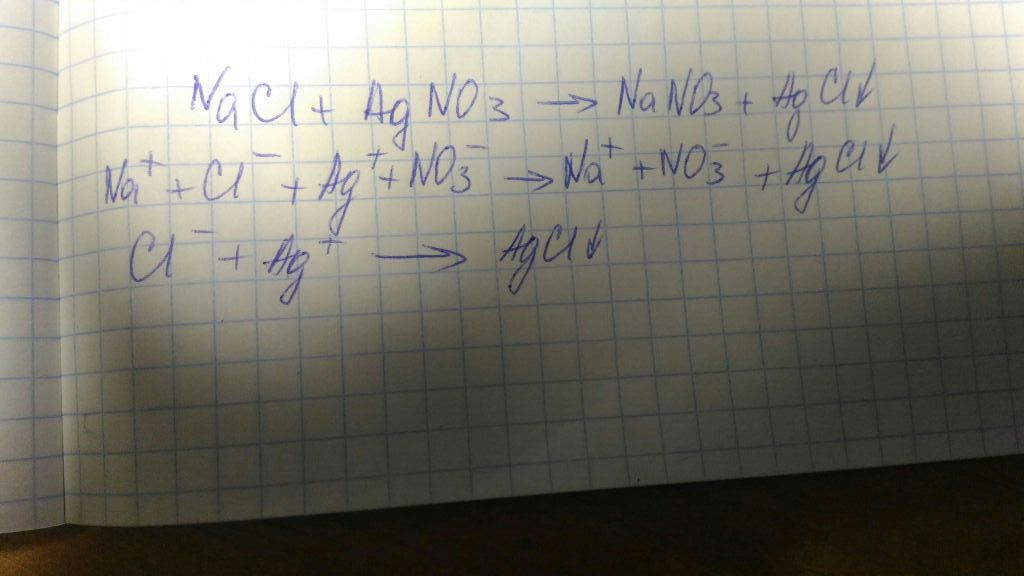 NaCl + AgNO₃ → NaNO₃ + AgCl↓
Na⁺ + Cl⁻ + Ag⁺ + NO₃⁻ → Na⁺ + NO₃⁻ + AgCl↓
Cl⁻ + Ag⁺ → AgCl↓